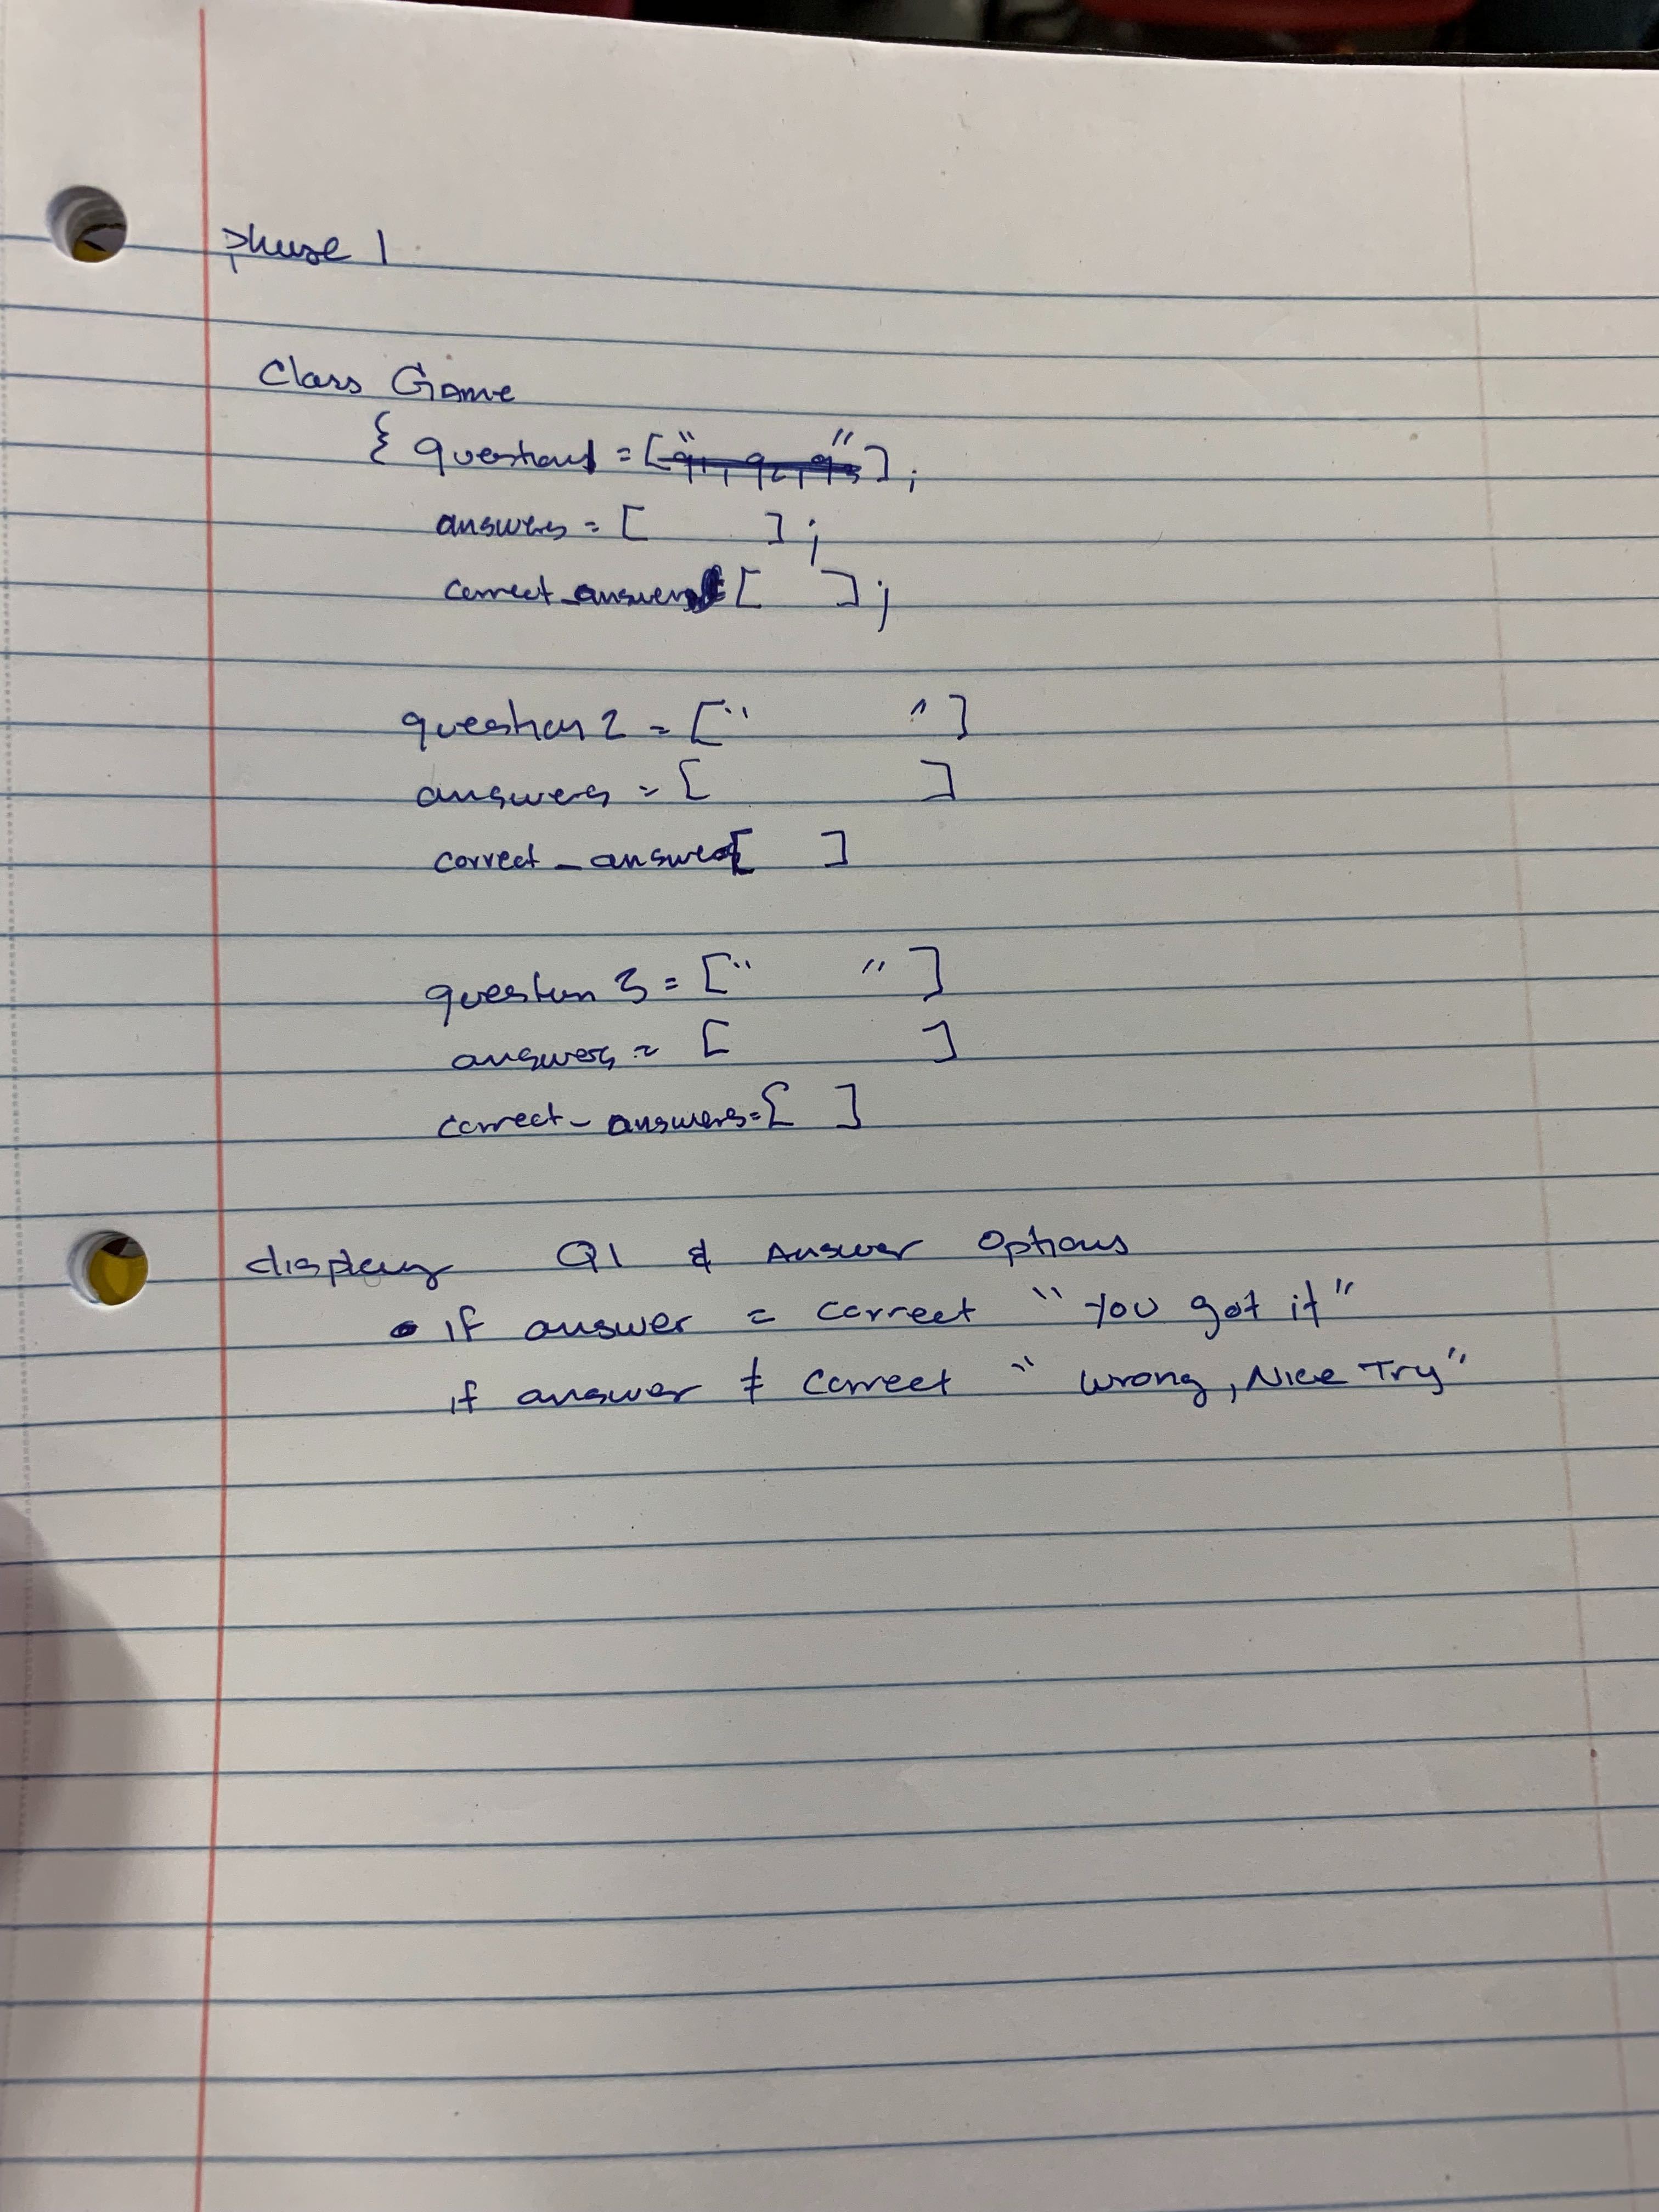 phase 1
Class Game
{ question1 = ["q1, q2, q3"];
answers = [ ];
correct_answers [ ];
question 2 = [" "]
answers = [ ]
correct_answer[ ]
question 3 = [" "]
answers = [ ]
correct_answers = [ ]
display Q1 & Answer Options
• if answer = correct "you got it"
if answer ≠ correct "wrong, Nice Try"